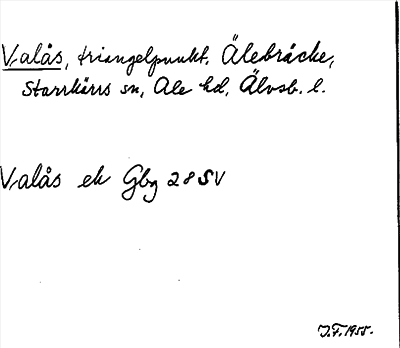 Valås, triangelpunkt, Älebräcke,
Starrkärrs sn, Ale hd, Älvsb. l.
Valås ek Gbg 28 SV
J.F. 1955.